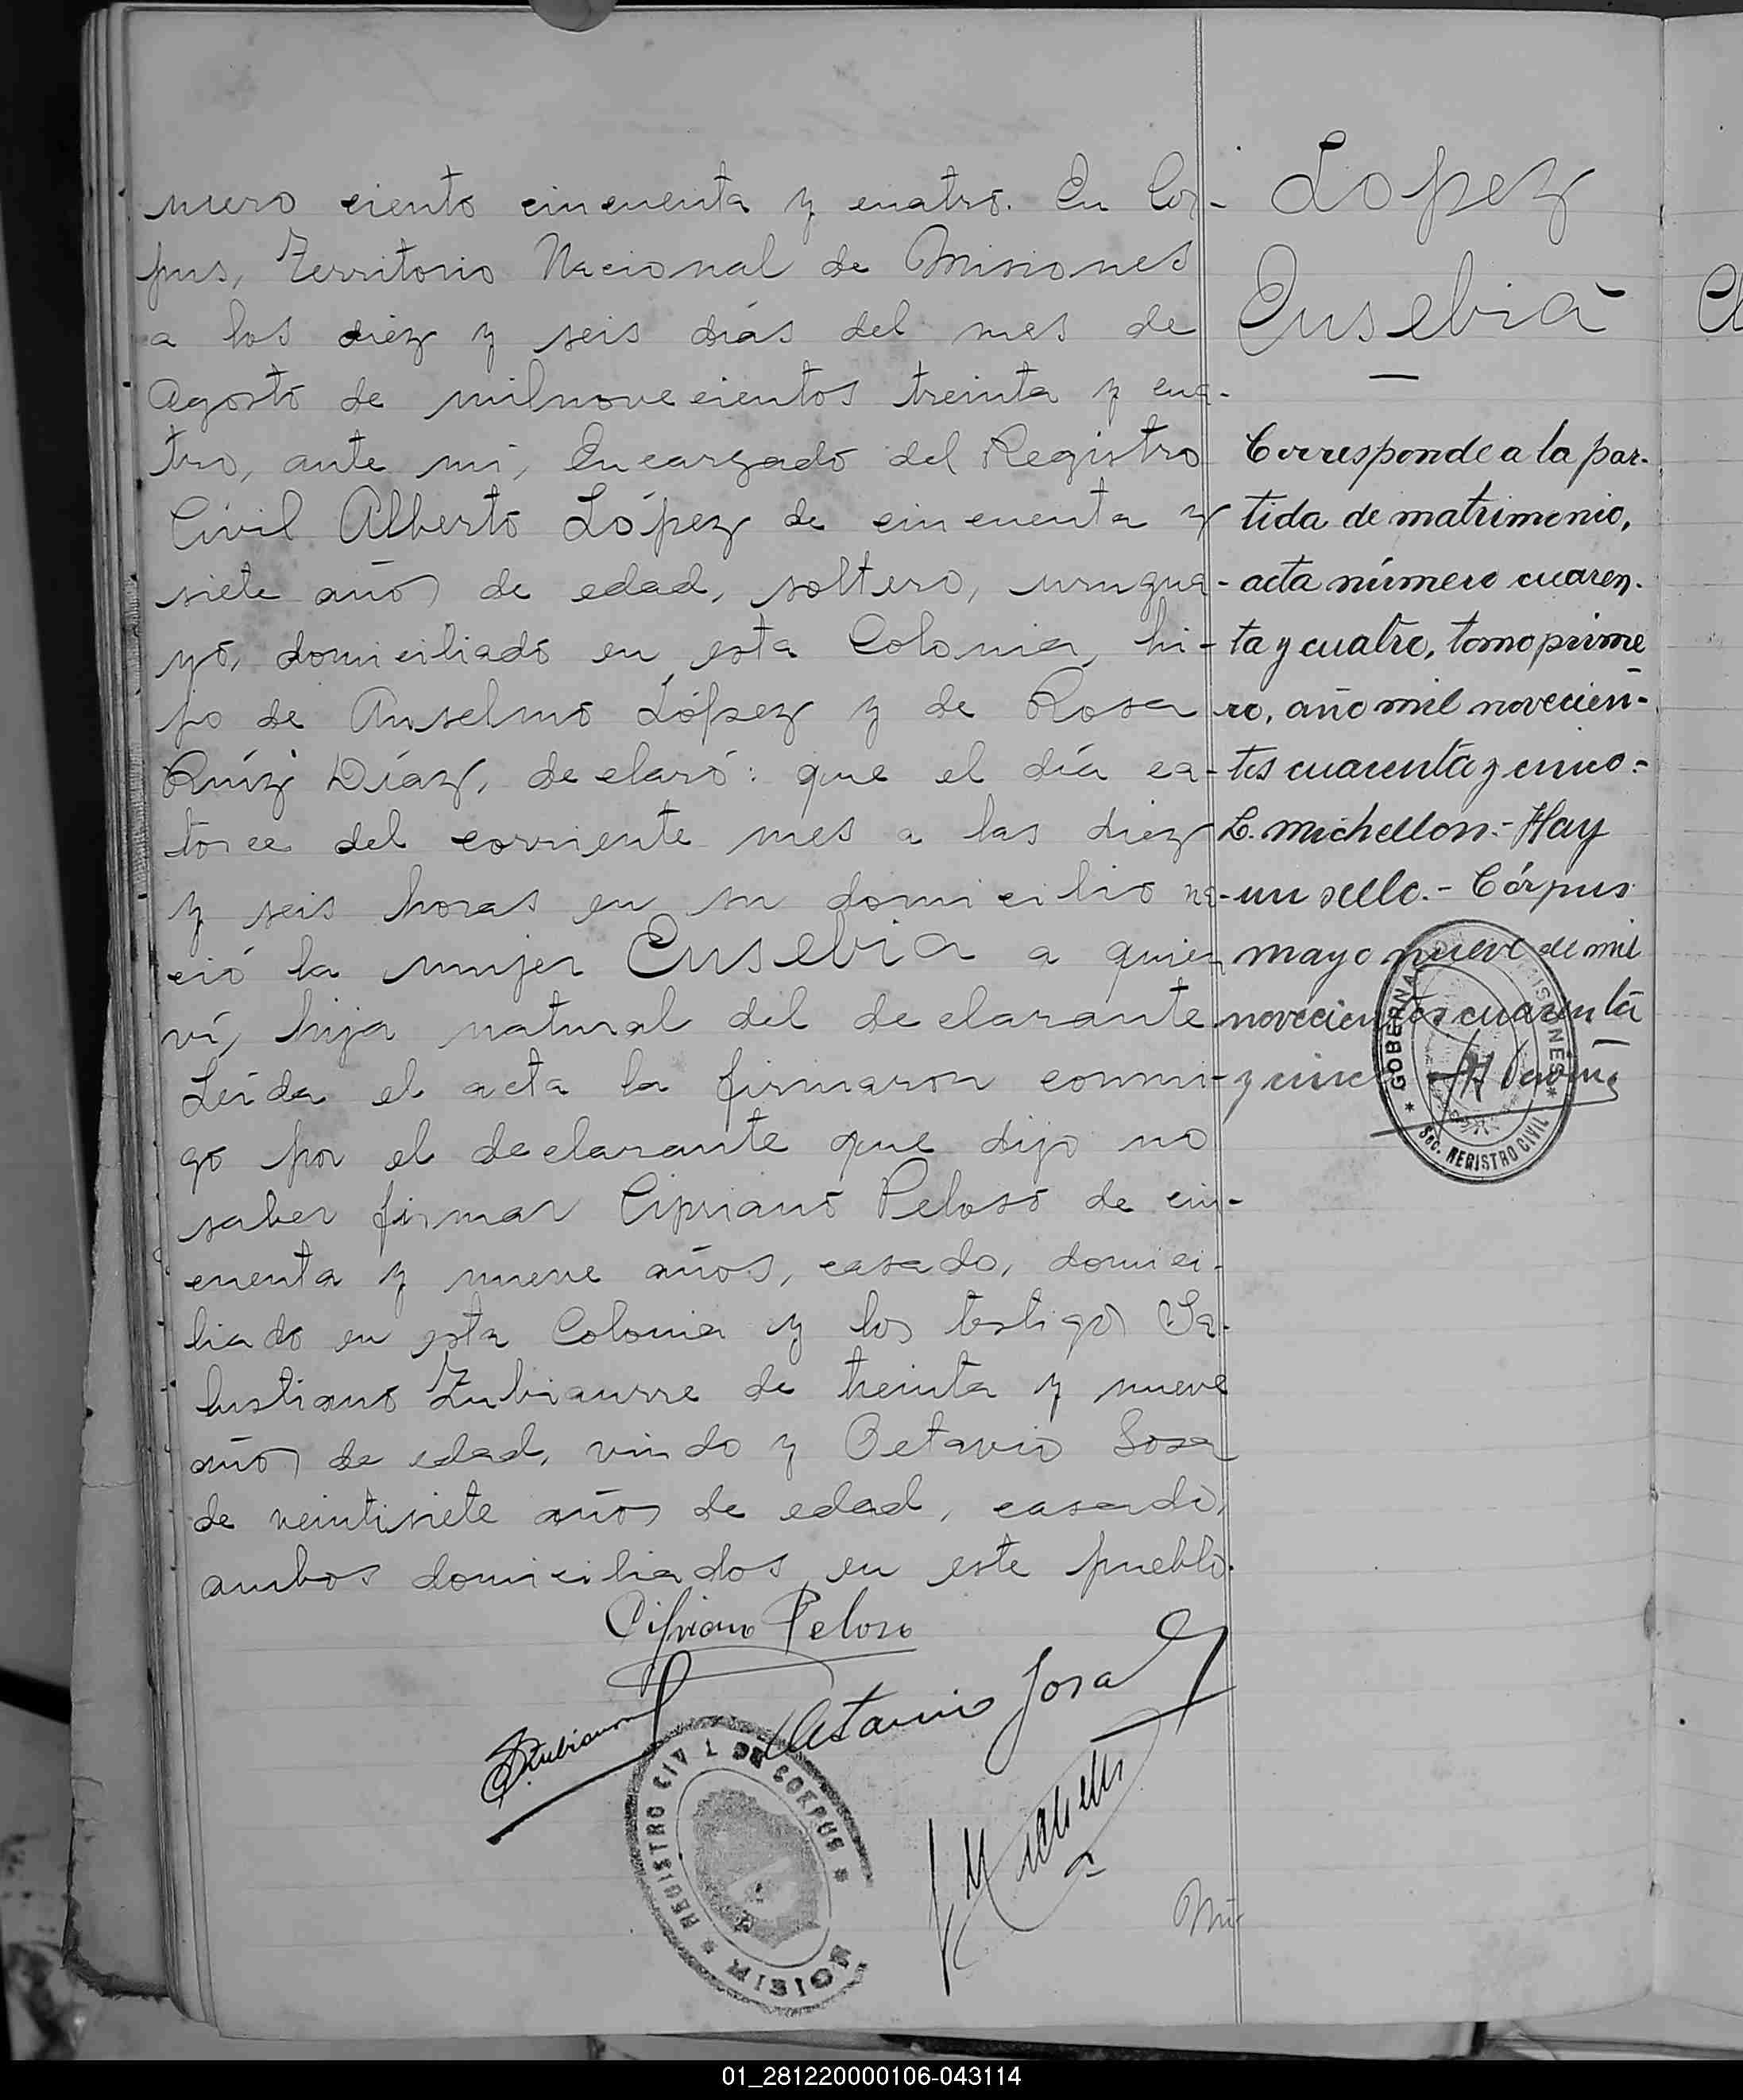 mero ciento cincuenta y cuatro. En Cor-
pus, Territorio Nacional de Misiones
a los diez y seis días del mes de
Agosto de milnovecientos treinta y cua-
tro, ante mí, Encargado del Registro
Civil Alberto López de cincuenta y
siete años de edad, soltero, urugua-
yo, domiciliado en esta Colonia, hi-
jo de Anselmo López y de Rosa
Ruíz Díaz, declaró: que el día ca-
torce del corriente mes a las diez
y seis horas en su domicilio na-
ció la mujer Eusebia a quien
ví, hija natural del declarante
Leída el acta la firmaron conmi-
go por el declarante que dijo no
saber firmar Cipriano Peloso de cin-
cuenta y nueve años, casado, domici-
liado en esta Colonia y los testigos Sa-
lustiano Zubiaurre de treinta y nueve
años de edad, viudo y Octavio Sosa
de veintisiete años de edad, casado,
ambos domiciliados en este pueblo.
Cipriano Peloso
Octavio Sosa
REGISTRO CIVIL DE CORPUS
MISION
Nú
Lopez
Eusebia
Corresponde a la par-
tida de matrimonio,
acta número cuaren-
ta y cuatro, tomo prime
ro, año mil novecien-
tos cuarenta y cinco.-
L. Michellon.- Hay
un sello.- Córpus
mayo nueve de mil
novecientos cuarenta
y cinco
GOBERNA MISIONES
Sec. REGISTRO CIVIL
01_281220000106-043114